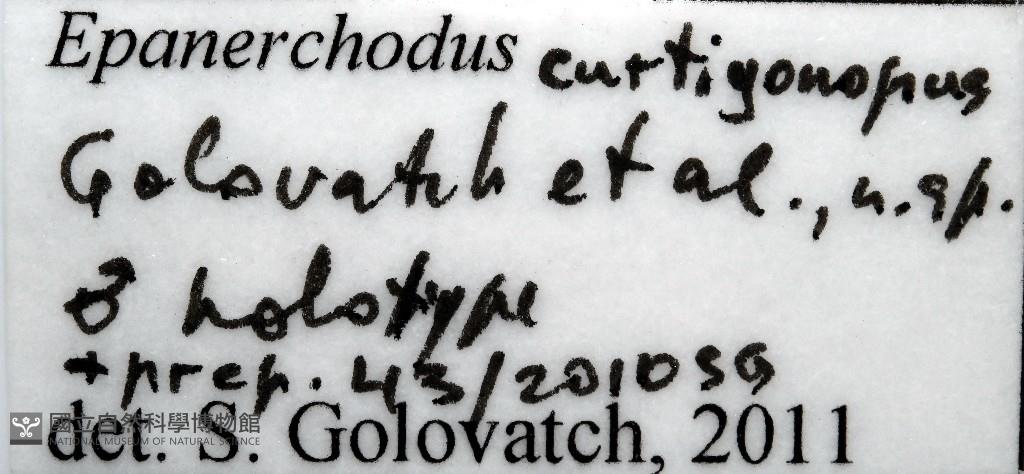 Epanerchodus curtigonopus
Golovatch et al., n. sp.
♂ holotype
+ prep. 43/2010 SG
det. S. Golovatch, 2011
國立自然科學博物館
NATIONAL MUSEUM OF NATURAL SCIENCE